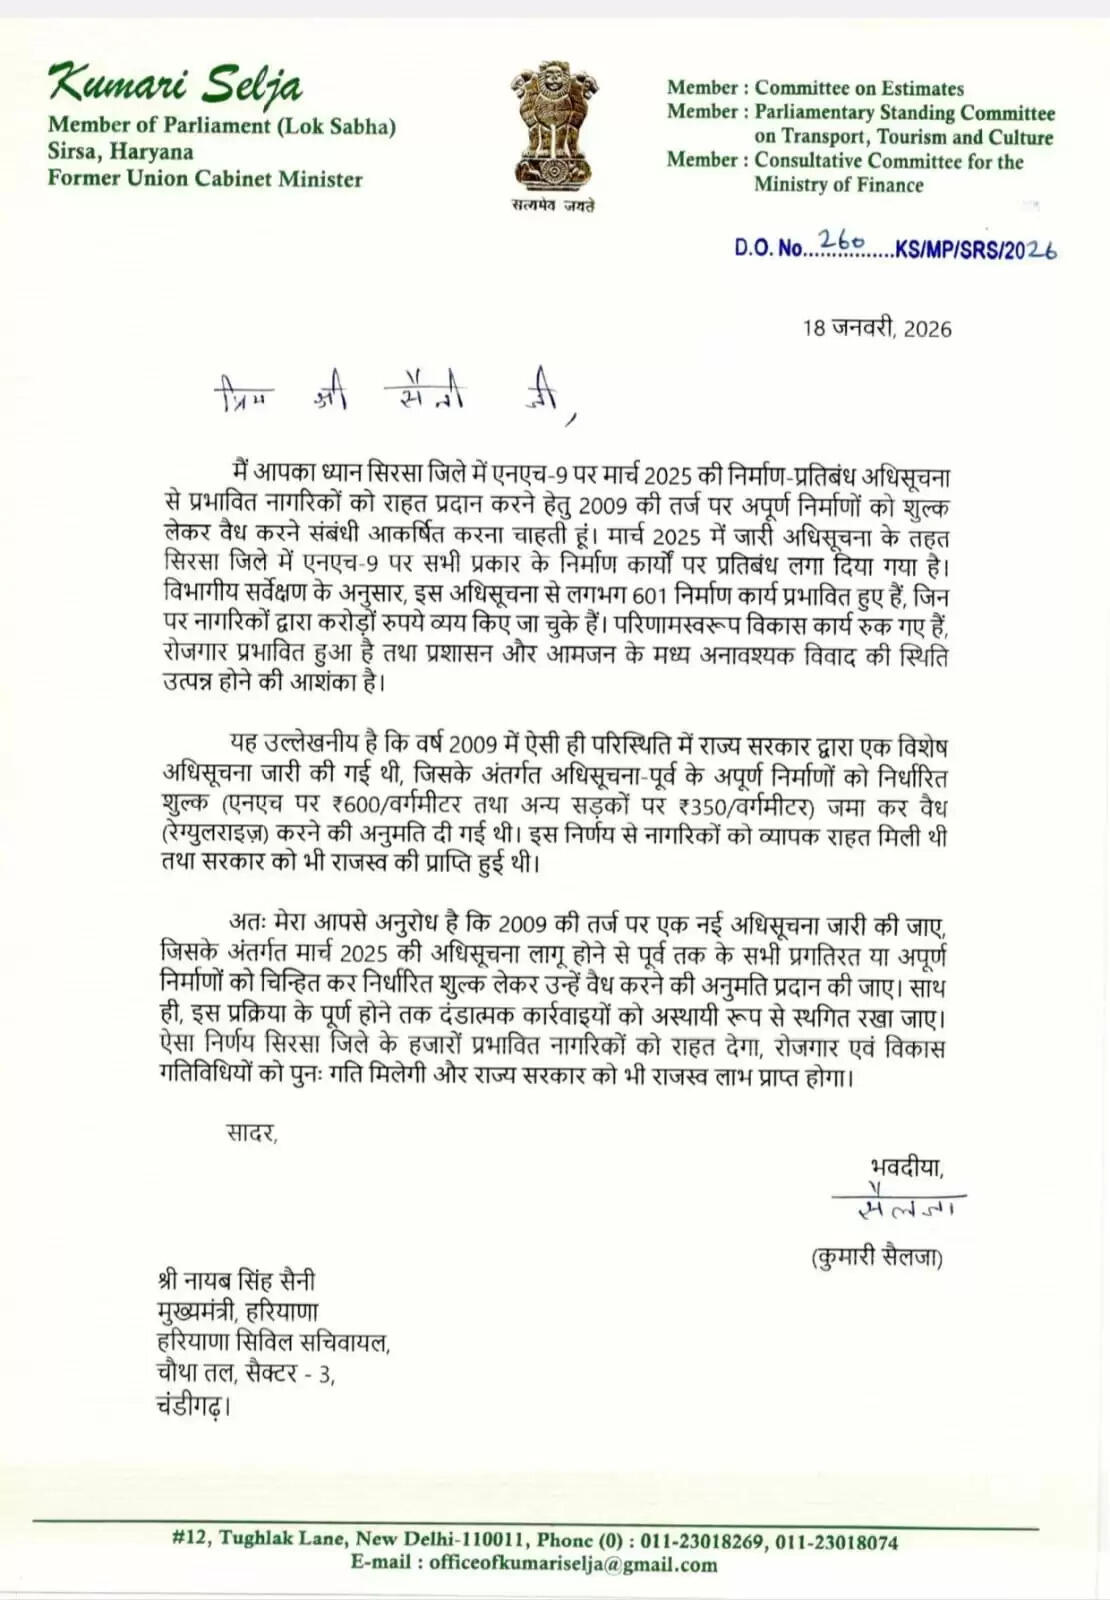 Kumari Selja
Member of Parliament (Lok Sabha)
Sirsa, Haryana
Former Union Cabinet Minister
सत्यमेव जयते
Member : Committee on Estimates
Member : Parliamentary Standing Committee
on Transport, Tourism and Culture
Member : Consultative Committee for the
Ministry of Finance
D.O. No...260...KS/MP/SRS/2026
18 जनवरी, 2026
प्रिय श्री सैनी जी,
मैं आपका ध्यान सिरसा जिले में एनएच-9 पर मार्च 2025 की निर्माण-प्रतिबंध अधिसूचना
से प्रभावित नागरिकों को राहत प्रदान करने हेतु 2009 की तर्ज पर अपूर्ण निर्माणों को शुल्क
लेकर वैध करने संबंधी आकर्षित करना चाहती हूं। मार्च 2025 में जारी अधिसूचना के तहत
सिरसा जिले में एनएच-9 पर सभी प्रकार के निर्माण कार्यों पर प्रतिबंध लगा दिया गया है।
विभागीय सर्वेक्षण के अनुसार, इस अधिसूचना से लगभग 601 निर्माण कार्य प्रभावित हुए हैं, जिन
पर नागरिकों द्वारा करोड़ों रुपये व्यय किए जा चुके हैं। परिणामस्वरूप विकास कार्य रुक गए हैं,
रोजगार प्रभावित हुआ है तथा प्रशासन और आमजन के मध्य अनावश्यक विवाद की स्थिति
उत्पन्न होने की आशंका है।
यह उल्लेखनीय है कि वर्ष 2009 में ऐसी ही परिस्थिति में राज्य सरकार द्वारा एक विशेष
अधिसूचना जारी की गई थी, जिसके अंतर्गत अधिसूचना-पूर्व के अपूर्ण निर्माणों को निर्धारित
शुल्क (एनएच पर ₹600/वर्गमीटर तथा अन्य सड़कों पर ₹350/वर्गमीटर) जमा कर वैध
(रेग्युलराइज़) करने की अनुमति दी गई थी। इस निर्णय से नागरिकों को व्यापक राहत मिली थी
तथा सरकार को भी राजस्व की प्राप्ति हुई थी।
अतः मेरा आपसे अनुरोध है कि 2009 की तर्ज पर एक नई अधिसूचना जारी की जाए,
जिसके अंतर्गत मार्च 2025 की अधिसूचना लागू होने से पूर्व तक के सभी प्रगतिरत या अपूर्ण
निर्माणों को चिन्हित कर निर्धारित शुल्क लेकर उन्हें वैध करने की अनुमति प्रदान की जाए। साथ
ही, इस प्रक्रिया के पूर्ण होने तक दंडात्मक कार्रवाइयों को अस्थायी रूप से स्थगित रखा जाए।
ऐसा निर्णय सिरसा जिले के हजारों प्रभावित नागरिकों को राहत देगा, रोजगार एवं विकास
गतिविधियों को पुनः गति मिलेगी और राज्य सरकार को भी राजस्व लाभ प्राप्त होगा।
सादर,
भवदीया,
सैलजा
(कुमारी सैलजा)
श्री नायब सिंह सैनी
मुख्यमंत्री, हरियाणा
हरियाणा सिविल सचिवायल,
चौथा तल, सैक्टर - 3,
चंडीगढ़।
#12, Tughlak Lane, New Delhi-110011, Phone (0) : 011-23018269, 011-23018074
E-mail : officeofkumariselja@gmail.com